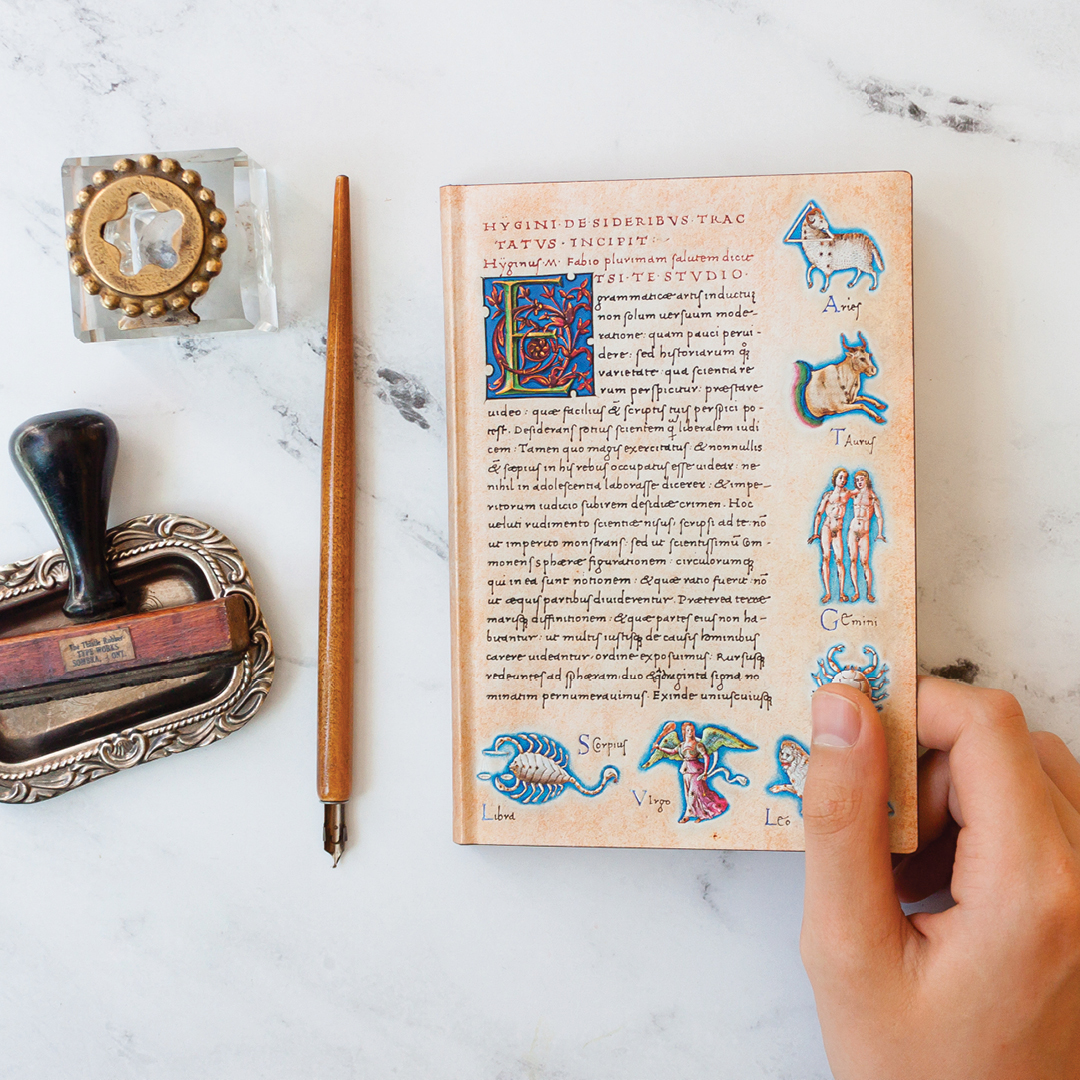 HŸGINI·DE·SIDERIBVS·TRAC
TATVS·INCIPIT:
Hÿginus·M·Fabio plurimam salutem dicit
ETSI·TE·STVDIO·
grammaticæ artis inductuȝ
non solum uersuum mode-
ratione: quam pauci perui-
dere: sed historiarum qȝ
varietate: qua scientia re
rum perspicitur: præstare
uideo: quæ facilius & scriptis tuis perspici po-
test. Desiderans potius scientem q̄ liberalem iudi
cem: Tamen quo magis exercitatus & nonnullis
& sæpius in his rebus occupatus esse uidear: ne
nihil in adolescentia laborasse dicerer: & impe-
ritorum iudicio subirem desidiæ crimen. Hoc
ueluti rudimento scientiæ nisus, scripsi ad te: nō
ut imperito monstrans: sed ut scientissimū com-
monens sphæræ figurationem: circulorumqȝ
qui in ea sunt notionem: & quæ ratio fuerit: nō
ut æquis partibus diuiderentur. Præterea terræ
marisqȝ diffinitionem: & quæ partes eius non ha-
bitantur: ut multis iustisqȝ de causis hominibus
carere uideantur: ordine exposuimus. Rursusqȝ
redeuntes ad sphæram: duo & quadraginta signa no
minatim pernumerauimus. Exinde uniuscuiusqȝ
Aries
TAurus
GEmini
SCorpius
Libra
Virgo
Leo
The Thistle Rubber
TYPE WORKS
SOMBRA, ONT.